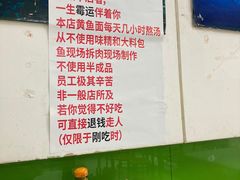 一生霉运伴着你
本店黄鱼面每天几小时熬汤
从不使用味精和大料包
鱼现场拆肉现场制作
不使用半成品
员工极其辛苦
非一般店所及
若你觉得不好吃
可直接退钱走人
(仅限于刚吃时)